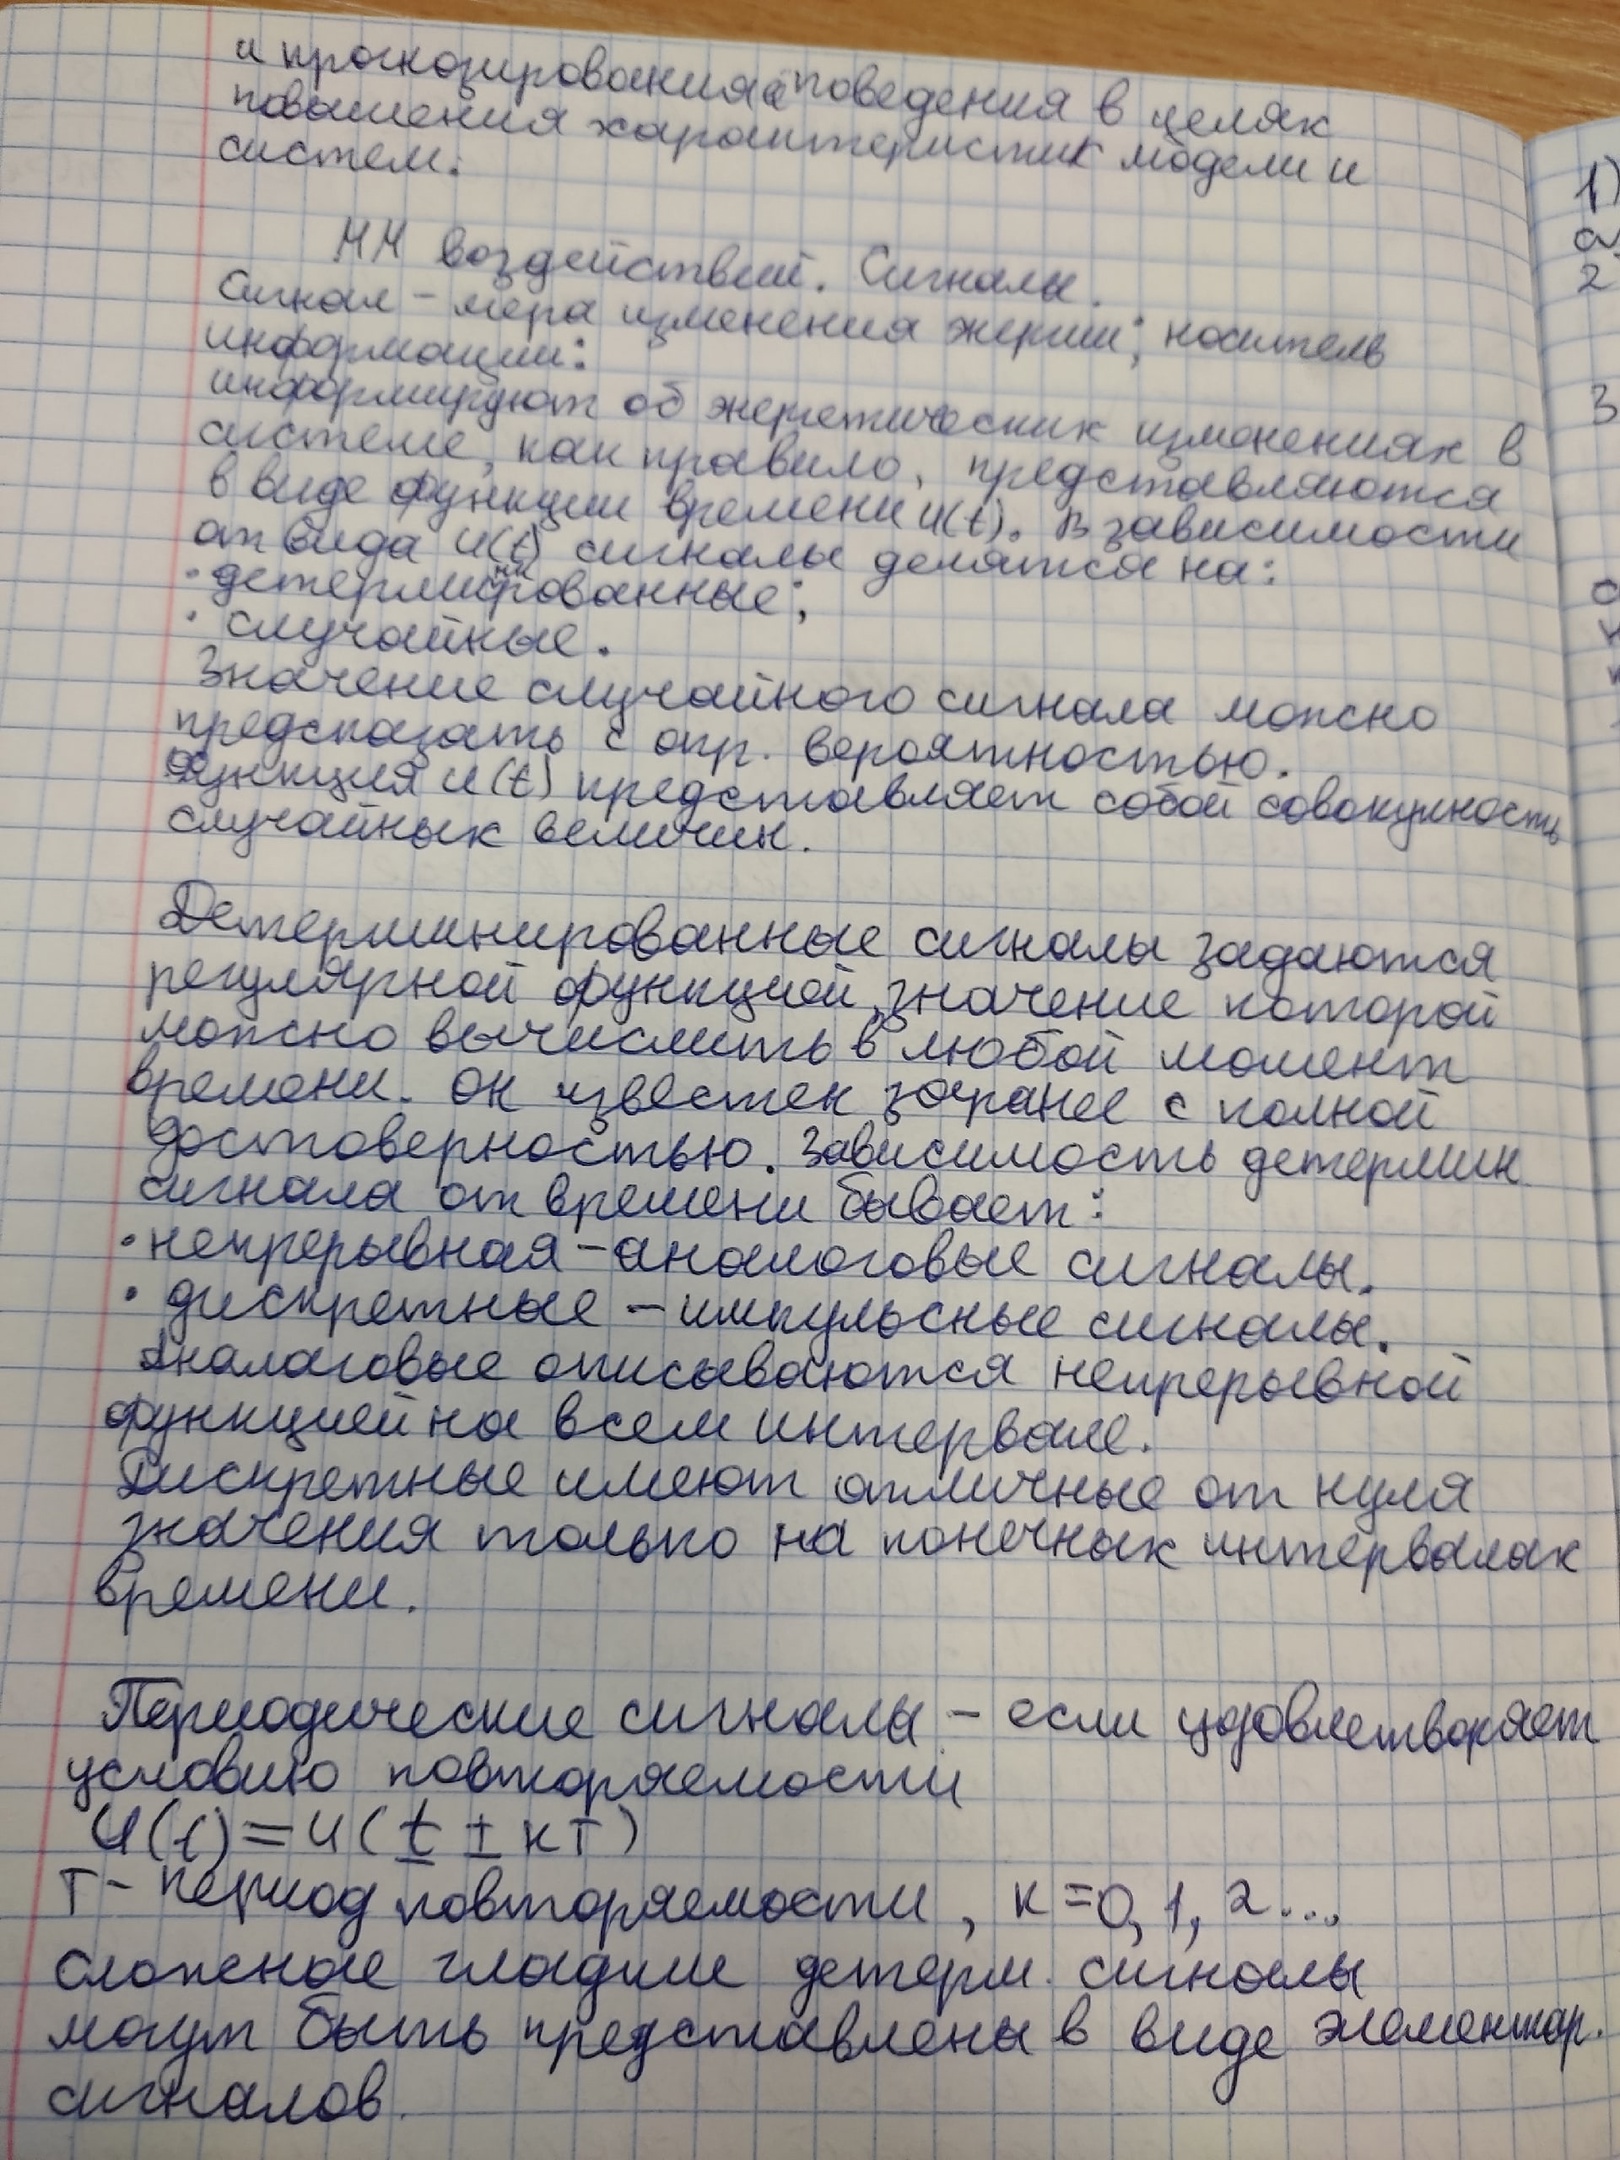 и прогнозирования поведения в целях
повышения характеристик модели и
систем.
ММ воздействий. Сигналы.
Сигнал – мера изменения энергии; носитель
информации:
информируют об энергетических изменениях в
системе, как правило, представляются
в виде функции времени u(t). В зависимости
от вида u(t) сигналы делятся на:
· детерминированные;
· случайные.
Значение случайного сигнала можно
предсказать с опр. вероятностью.
Функция u(t) представляет собой совокупность
случайных величин.
Детерминированные сигналы задаются
регулярной функцией, значение которой
можно вычислить в любой момент
времени. Он известен заранее с полной
достоверностью. Зависимость детермин
сигнала от времени бывает:
· непрерывная – аналоговые сигналы.
· дискретные – импульсные сигналы.
Аналаговые описываются непрерывной
функцией на всем интервале.
Дискретные имеют отличные от нуля
значения только на конечных интервалах
времени.
Периодические сигналы – если удовлетворяет
условию повторяемости
u(t) = u(t ± кT)
T – период повторяемости, к = 0, 1, 2...,
сложные гладкие детерм. сигналы
могут быть представлены в виде элементар.
сигналов.
1)
а
2
3